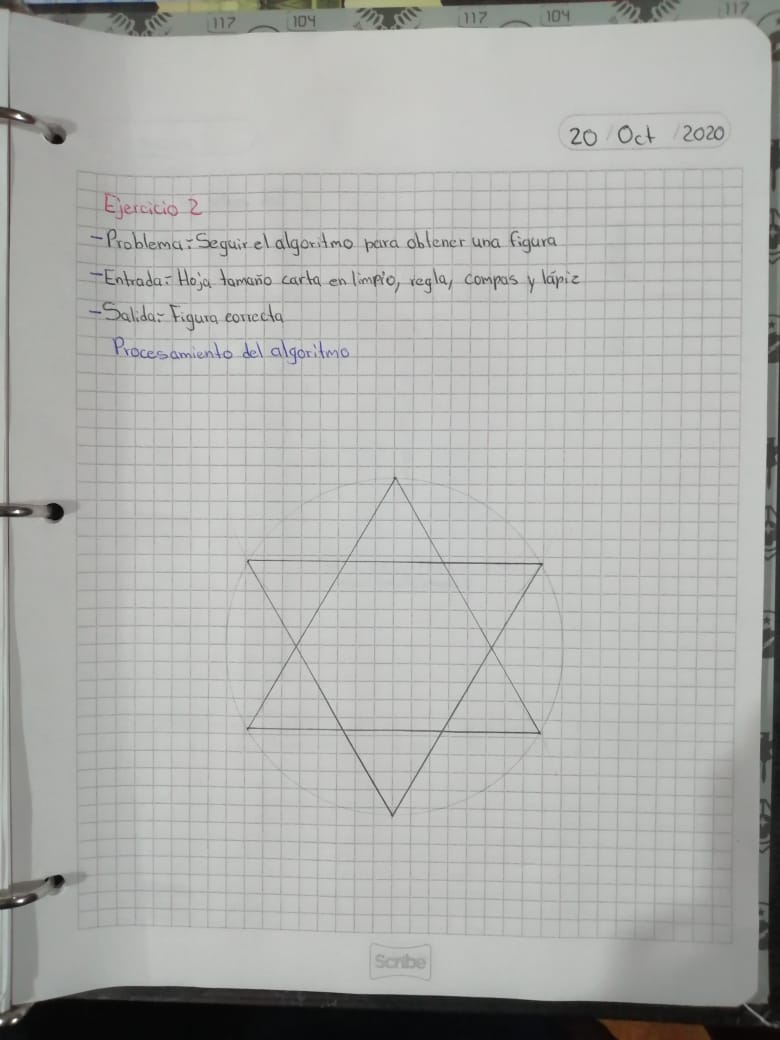 117 104 117 104 117
20 Oct 2020
Ejercicio 2
-Problema:- Seguir el algoritmo para obtener una figura
-Entrada:- Hoja tamaño carta en limpio, regla, compas y lápiz
-Salida:- Figura correcta
Procesamiento del algoritmo
Scribe